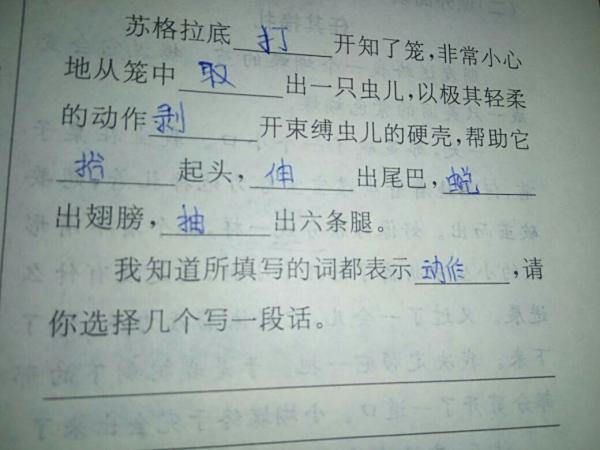 苏格拉底打开知了笼,非常小心
地从笼中取出一只虫儿,以极其轻柔
的动作剥开束缚虫儿的硬壳,帮助它
抬起头,伸出尾巴,蜕
出翅膀,抽出六条腿。
我知道所填写的词都表示动作,请
你选择几个写一段话。